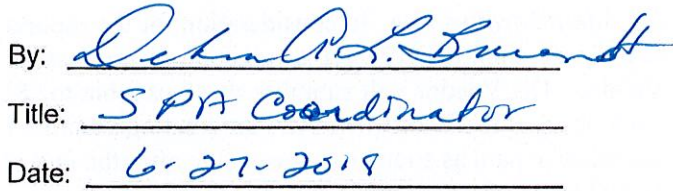 By: Debra A. L.
Title: SPA Coordinator
Date: 6-27-2018